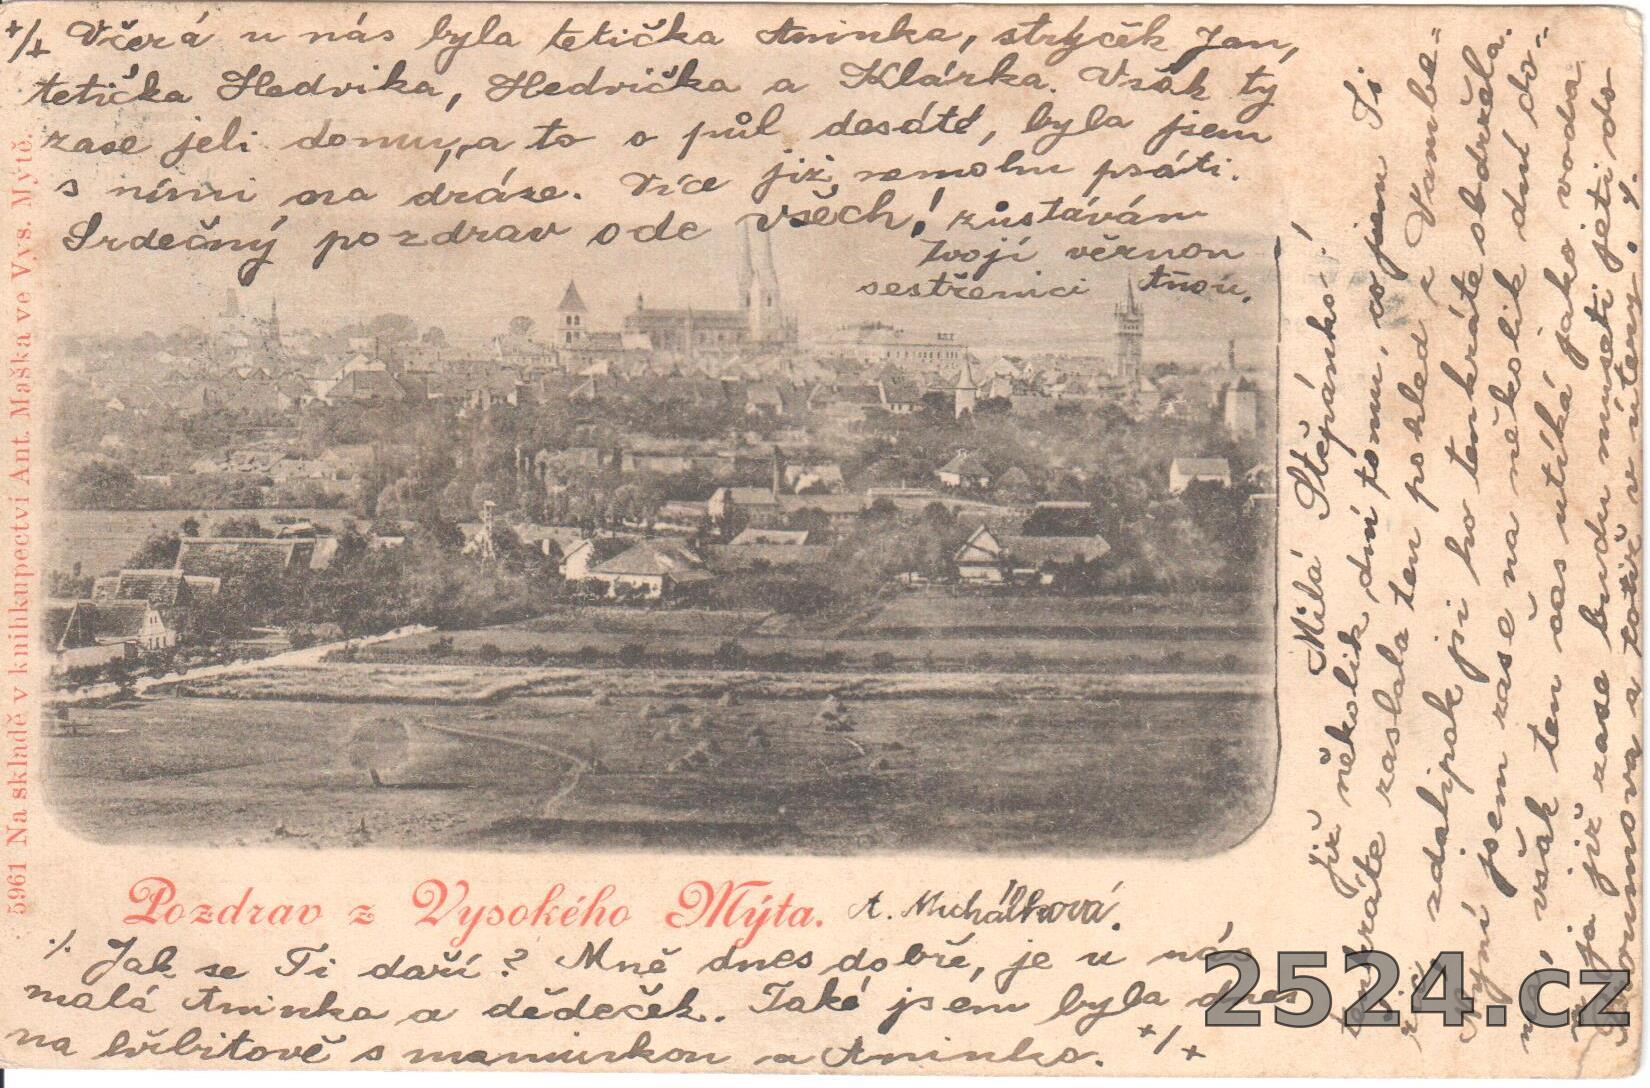 Milá Štěpánko!
Již několik dní tomu, co jsem Ti
tenkráte zaslala ten pohled z Vamber-
zdalipak jsi ho tenkráte obdržela.
Nyní jsem zase na několik dní do-
však ten čas utíká jako voda
a já již zase budu museti jeti do
a totiž v úterý. ./.
./. Jak se Ti daří? Mně dnes dobře, je u nás
malá Aninka a dědeček. Také jsem byla dnes
na hřbitově s maminkou a Aninko. +/+
+/+ Včerá u nás byla tetička Aninka, strýček Jan,
tetička Hedvika, Hedvička a Klárka. Však ty
zase jeli domu, a to o půl desáté, byla jsem
s nimi na dráze. Více již nemohu psáti.
Srdečný pozdrav ode všech! zůstávám
Tvojí věrnou
sestřenici Aňou.
Pozdrav z Vysokého Mýta. A. Michálková.
5961 Na skladě v knihkupectví Ant. Maška ve Vys. Mýtě.
2524.cz